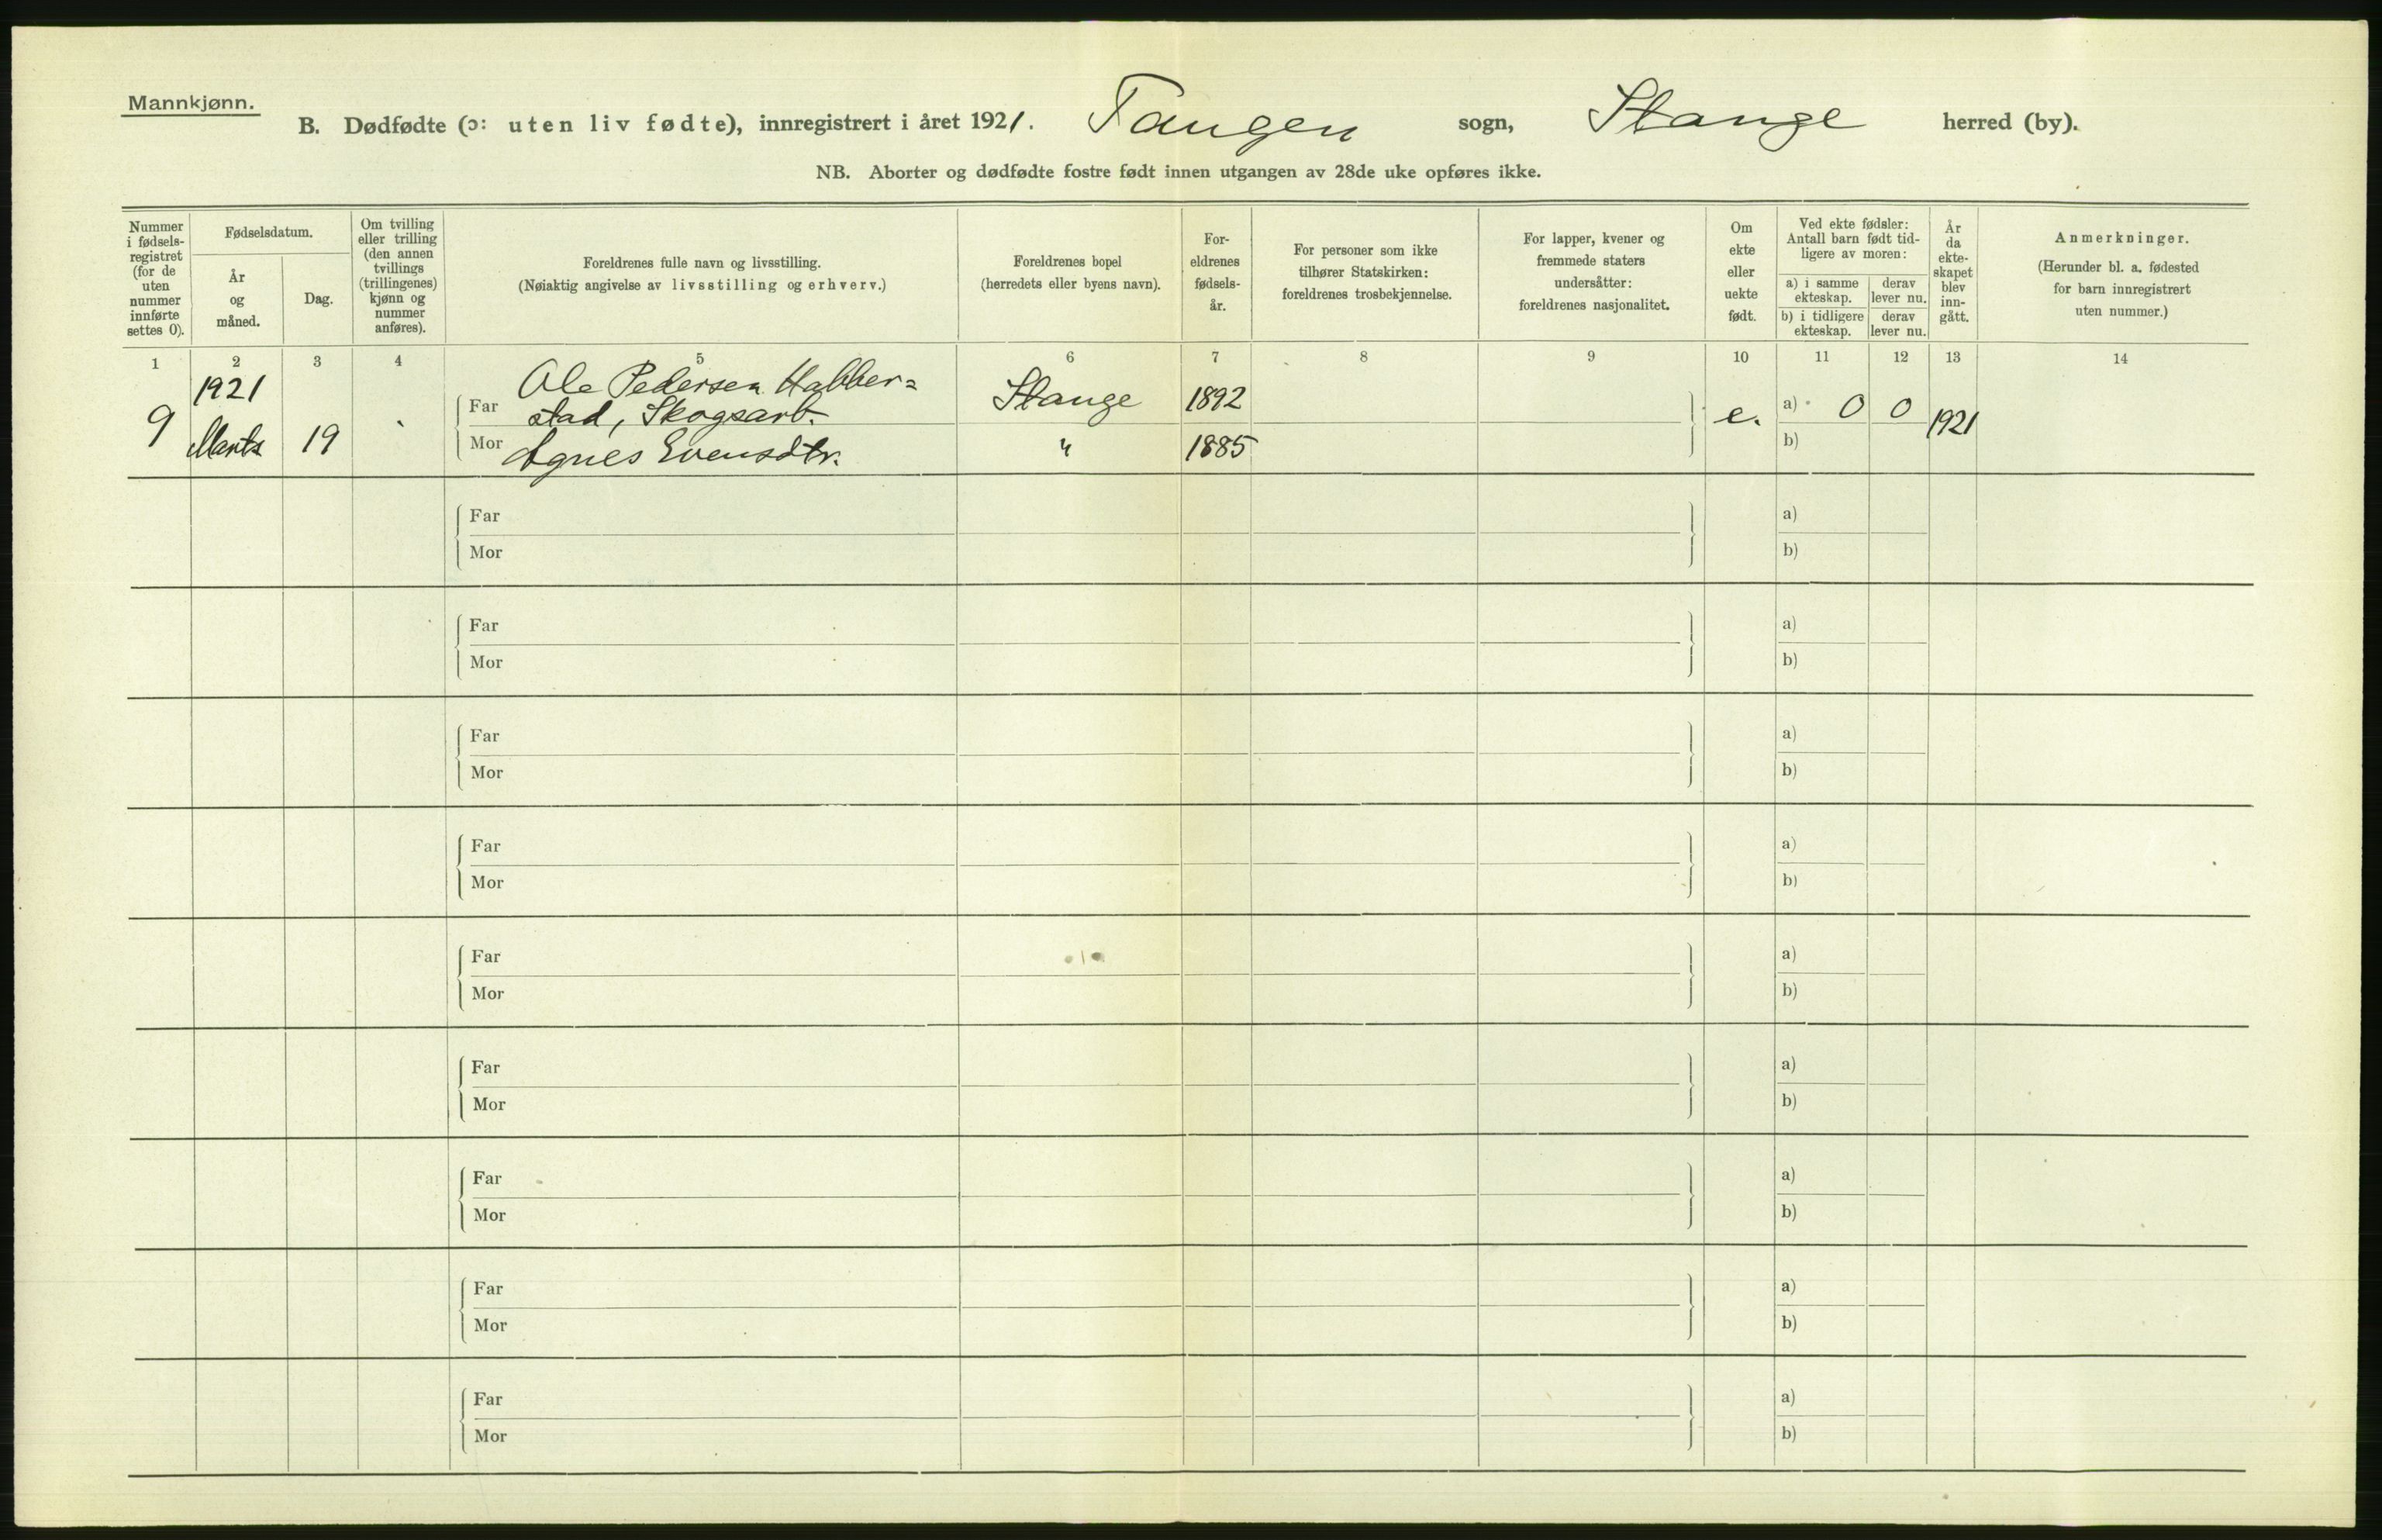 Mannkjønn.
B. Dødfødte (ɔ: uten liv fødte), innregistrert i året 1921. Tangen sogn, Stange herred (by).
NB. Aborter og dødfødte fostre født innen utgangen av 28de uke opføres ikke.
Nummer
i fødsels-
registret
(for de
uten
nummer
innførte
settes 0).
Fødselsdatum.
År
og
måned.
Dag.
Om tvilling
eller trilling
(den annen
tvillings
(trillingenes)
kjønn og
nummer
anføres).
Foreldrenes fulle navn og livsstilling.
(Nøiaktig angivelse av livsstilling og erhverv.)
Foreldrenes bopel
(herredets eller byens navn).
For-
eldrenes
fødsels-
år.
For personer som ikke
tilhører Statskirken:
foreldrenes trosbekjennelse.
For lapper, kvener og
fremmede staters
undersåtter:
foreldrenes nasjonalitet.
Om
ekte
eller
uekte
født.
Ved ekte fødsler:
Antall barn født tid-
ligere av moren:
a) i samme
ekteskap.
derav
lever nu.
b) i tidligere
ekteskap.
derav
lever nu.
År
da
ekte-
skapet
blev
inn-
gått.
Anmerkninger.
(Herunder bl. a. fødested
for barn innregistrert
uten nummer.)
1 2 3 4 5 6 7 8 9 10 11 12 13 14
9
1921
Marts
19
Far Ole Pedersen Habber=
stad, Skogsarb.
Stange
1892
e.
a) 0 0
1921
Mor Agnes Evensdtr.
"
1885
b)
Far
a)
Mor
b)
Far
a)
Mor
b)
Far
a)
Mor
b)
Far
a)
Mor
b)
Far
a)
Mor
b)
Far
a)
Mor
b)
Far
a)
Mor
b)
Far
a)
Mor
b)
Far
a)
Mor
b)